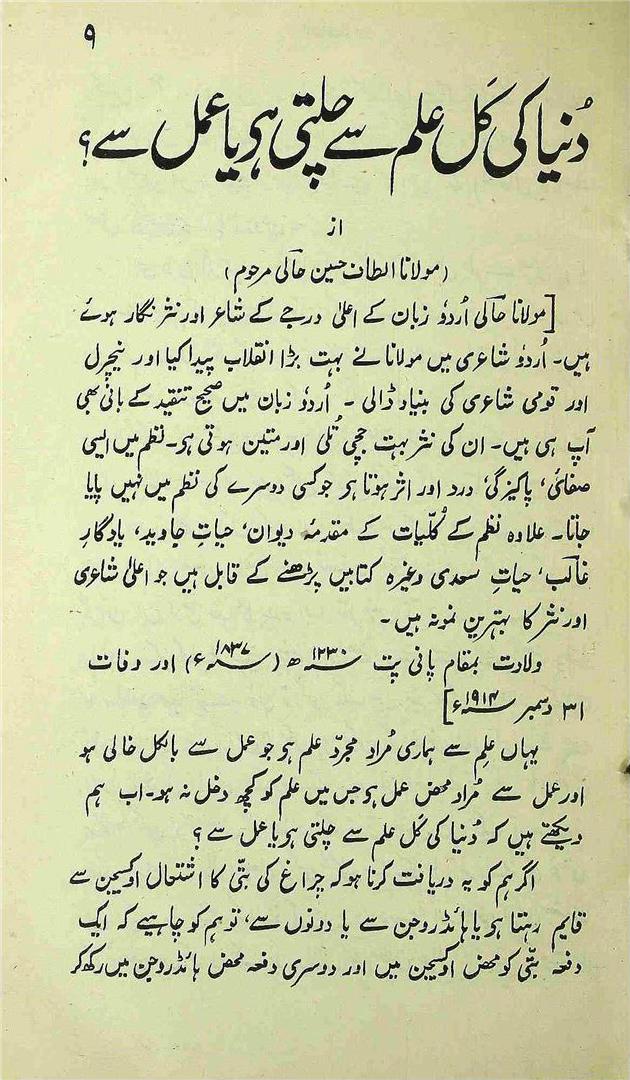 ۹
دُنیا کی کَل علم سے چلتی ہی یا عمل سے؟
از
(مولانا الطاف حسین حالی مرحوم)
[مولانا حالی اُردو زبان کے اعلیٰ درجے کے شاعر اور نثر نگار ہوئے
ہیں۔ اُردو شاعری میں مولانا نے بہت بڑا انقلاب پیدا کیا اور نیچرل
اور قومی شاعری کی بنیاد ڈالی۔ اُردو زبان میں صحیح تنقید کے بانی بھی
آپ ہی ہیں۔ ان کی نثر بہت جچی تُلی اور متین ہوتی ہی۔ نظم میں ایسی
صفائی، پاکیزگی، درد اور اثر ہوتا ہی جو کسی دوسرے کی نظم میں نہیں پایا
جاتا۔ علاوہ نظم کے کُلّیات کے مقدمۂ دیوان، حیاتِ جاوید، یادگارِ
غالب، حیاتِ سعدی وغیرہ کتابیں پڑھنے کے قابل ہیں جو اعلیٰ شاعری
اور نثر کا بہترین نمونہ ہیں۔
ولادت بمقام پانی پت ۱۲۳۰ھ (۱۸۳۷ء) اور وفات
۳۱ دسمبر ۱۹۱۴ء]
یہاں علم سے ہماری مُراد مجرّد علم ہی جو عمل سے بالکل خالی ہو
اور عمل سے مُراد محض عمل ہی جس میں علم کو کچھ دخل نہ ہو۔ اب ہم
دیکھتے ہیں کہ دُنیا کی کَل علم سے چلتی ہی یا عمل سے؟
اگر ہم کو یہ دریافت کرنا ہو کہ چراغ کی بتّی کا اشتعال اوکسیجن سے
قایم رہتا ہی یا ہائڈروجن سے یا دونوں سے، تو ہم کو چاہیے کہ ایک
دفعہ بتّی کو محض اوکسیجن میں اور دوسری دفعہ محض ہائڈروجن میں رکھ کر